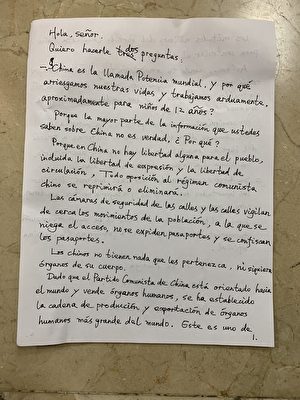 Hola, señor.
Quiero hacerle tres dos preguntas.
- China es la llamada Potencia mundial, y por qué
arriesgamos nuestras vidas y trabajamos arduamente,
aproximadamente para niños de 12 años?
Porque la mayor parte de la información que ustedes
saben sobre China no es verdad, ¿Por qué?
Porque en China no hay libertad alguna para el pueblo,
incluida la libertad de expresión y la libertad de
circulación, Todo oposición al régimen comunista
chino se reprimirá o eliminará.
Las cámaras de seguridad de las calles y las calles vigilan
de cerca los movimientos de la población, a la que se
niega el acceso, no se expiden pasaportes y se confiscan
los pasaportes.
Los chinos no tienen nada que les pertenezca, ni siquiera
órganos de su cuerpo.
Dado que el Partido Comunista de China está orientado hacia
el mundo y vende órganos humanos, se ha establecido
la cadena de producción y exportación de órganos
humanos más grande del mundo. Este es uno de
1.